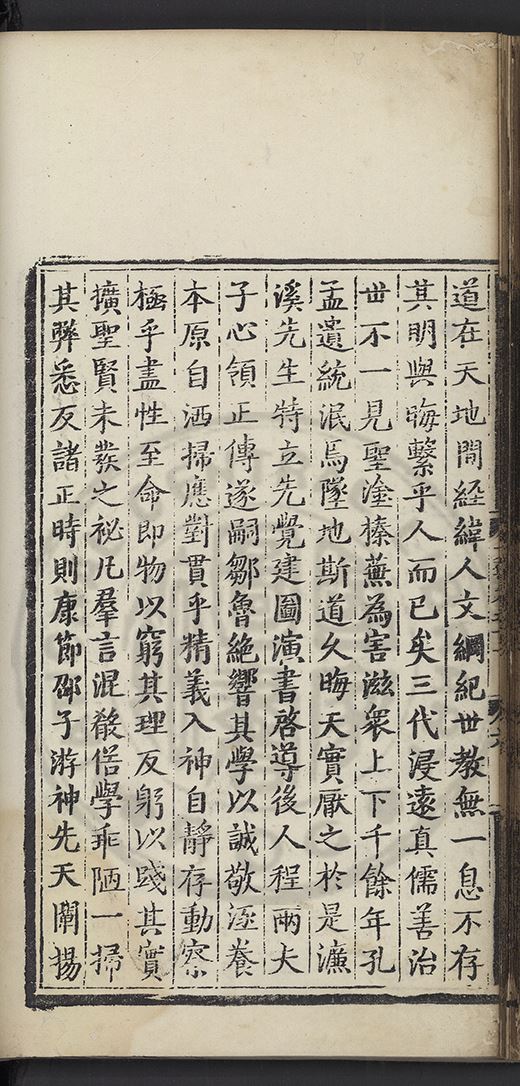 道在天地間経緯人文綱紀世教無一息不存
其明與晦繫乎人而已矣三代浸遠真儒善治
世不一見聖塗榛蕪為害滋衆上下千餘年孔
孟遺統泯焉墜地斯道久晦天實厭之於是濂
溪先生特立先覺建圖演書啓導後人程兩夫
子心領正傳遂嗣鄒魯絶響其學以誠敬涵養
本原自洒掃應對貫乎精義入神自靜存動察
極乎盡性至命即物以窮其理反躬以踐其實
擴聖賢未發之祕凡羣言混殽俗學乖陋一掃
其弊悉反諸正時則康節邵子游神先天闡揚